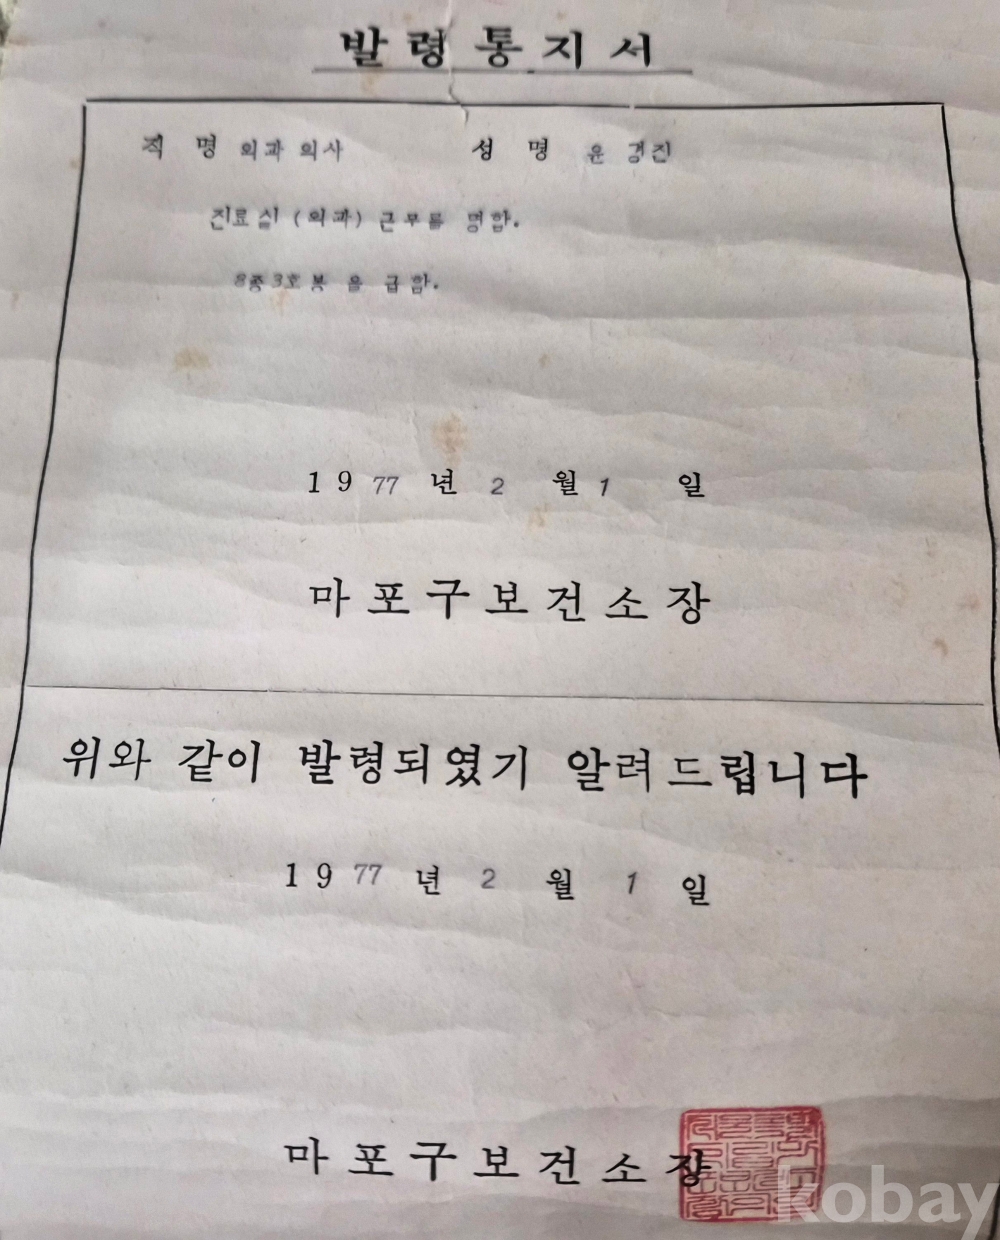 발령통지서
직 명 외과 의사 성 명 윤 경진
진료실 (외과) 근무를 명함.
8종3호봉 을 급함.
1977년 2월 1일
마포구보건소장
위와 같이 발령되였기 알려드립니다
1977년 2월 1일
마포구보건소장
kobay